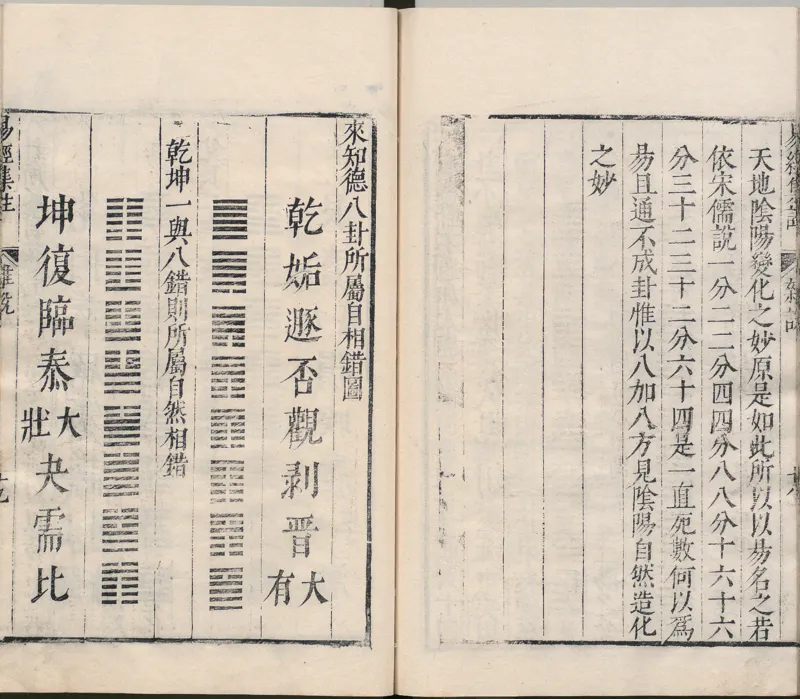 天地陰陽變化之妙原是如此所以以易名之若
依宋儒說一分二二分四四分八八分十六十六
分三十二三十二分六十四是一直死數何以爲
易且通不成卦惟以八加八方見陰陽自然造化
之妙
來知德八卦所屬自相錯圖
乾姤遯否觀剥晋大有
乾坤一與八錯則所屬自然相錯
坤復臨泰大壯夬需比
易經集